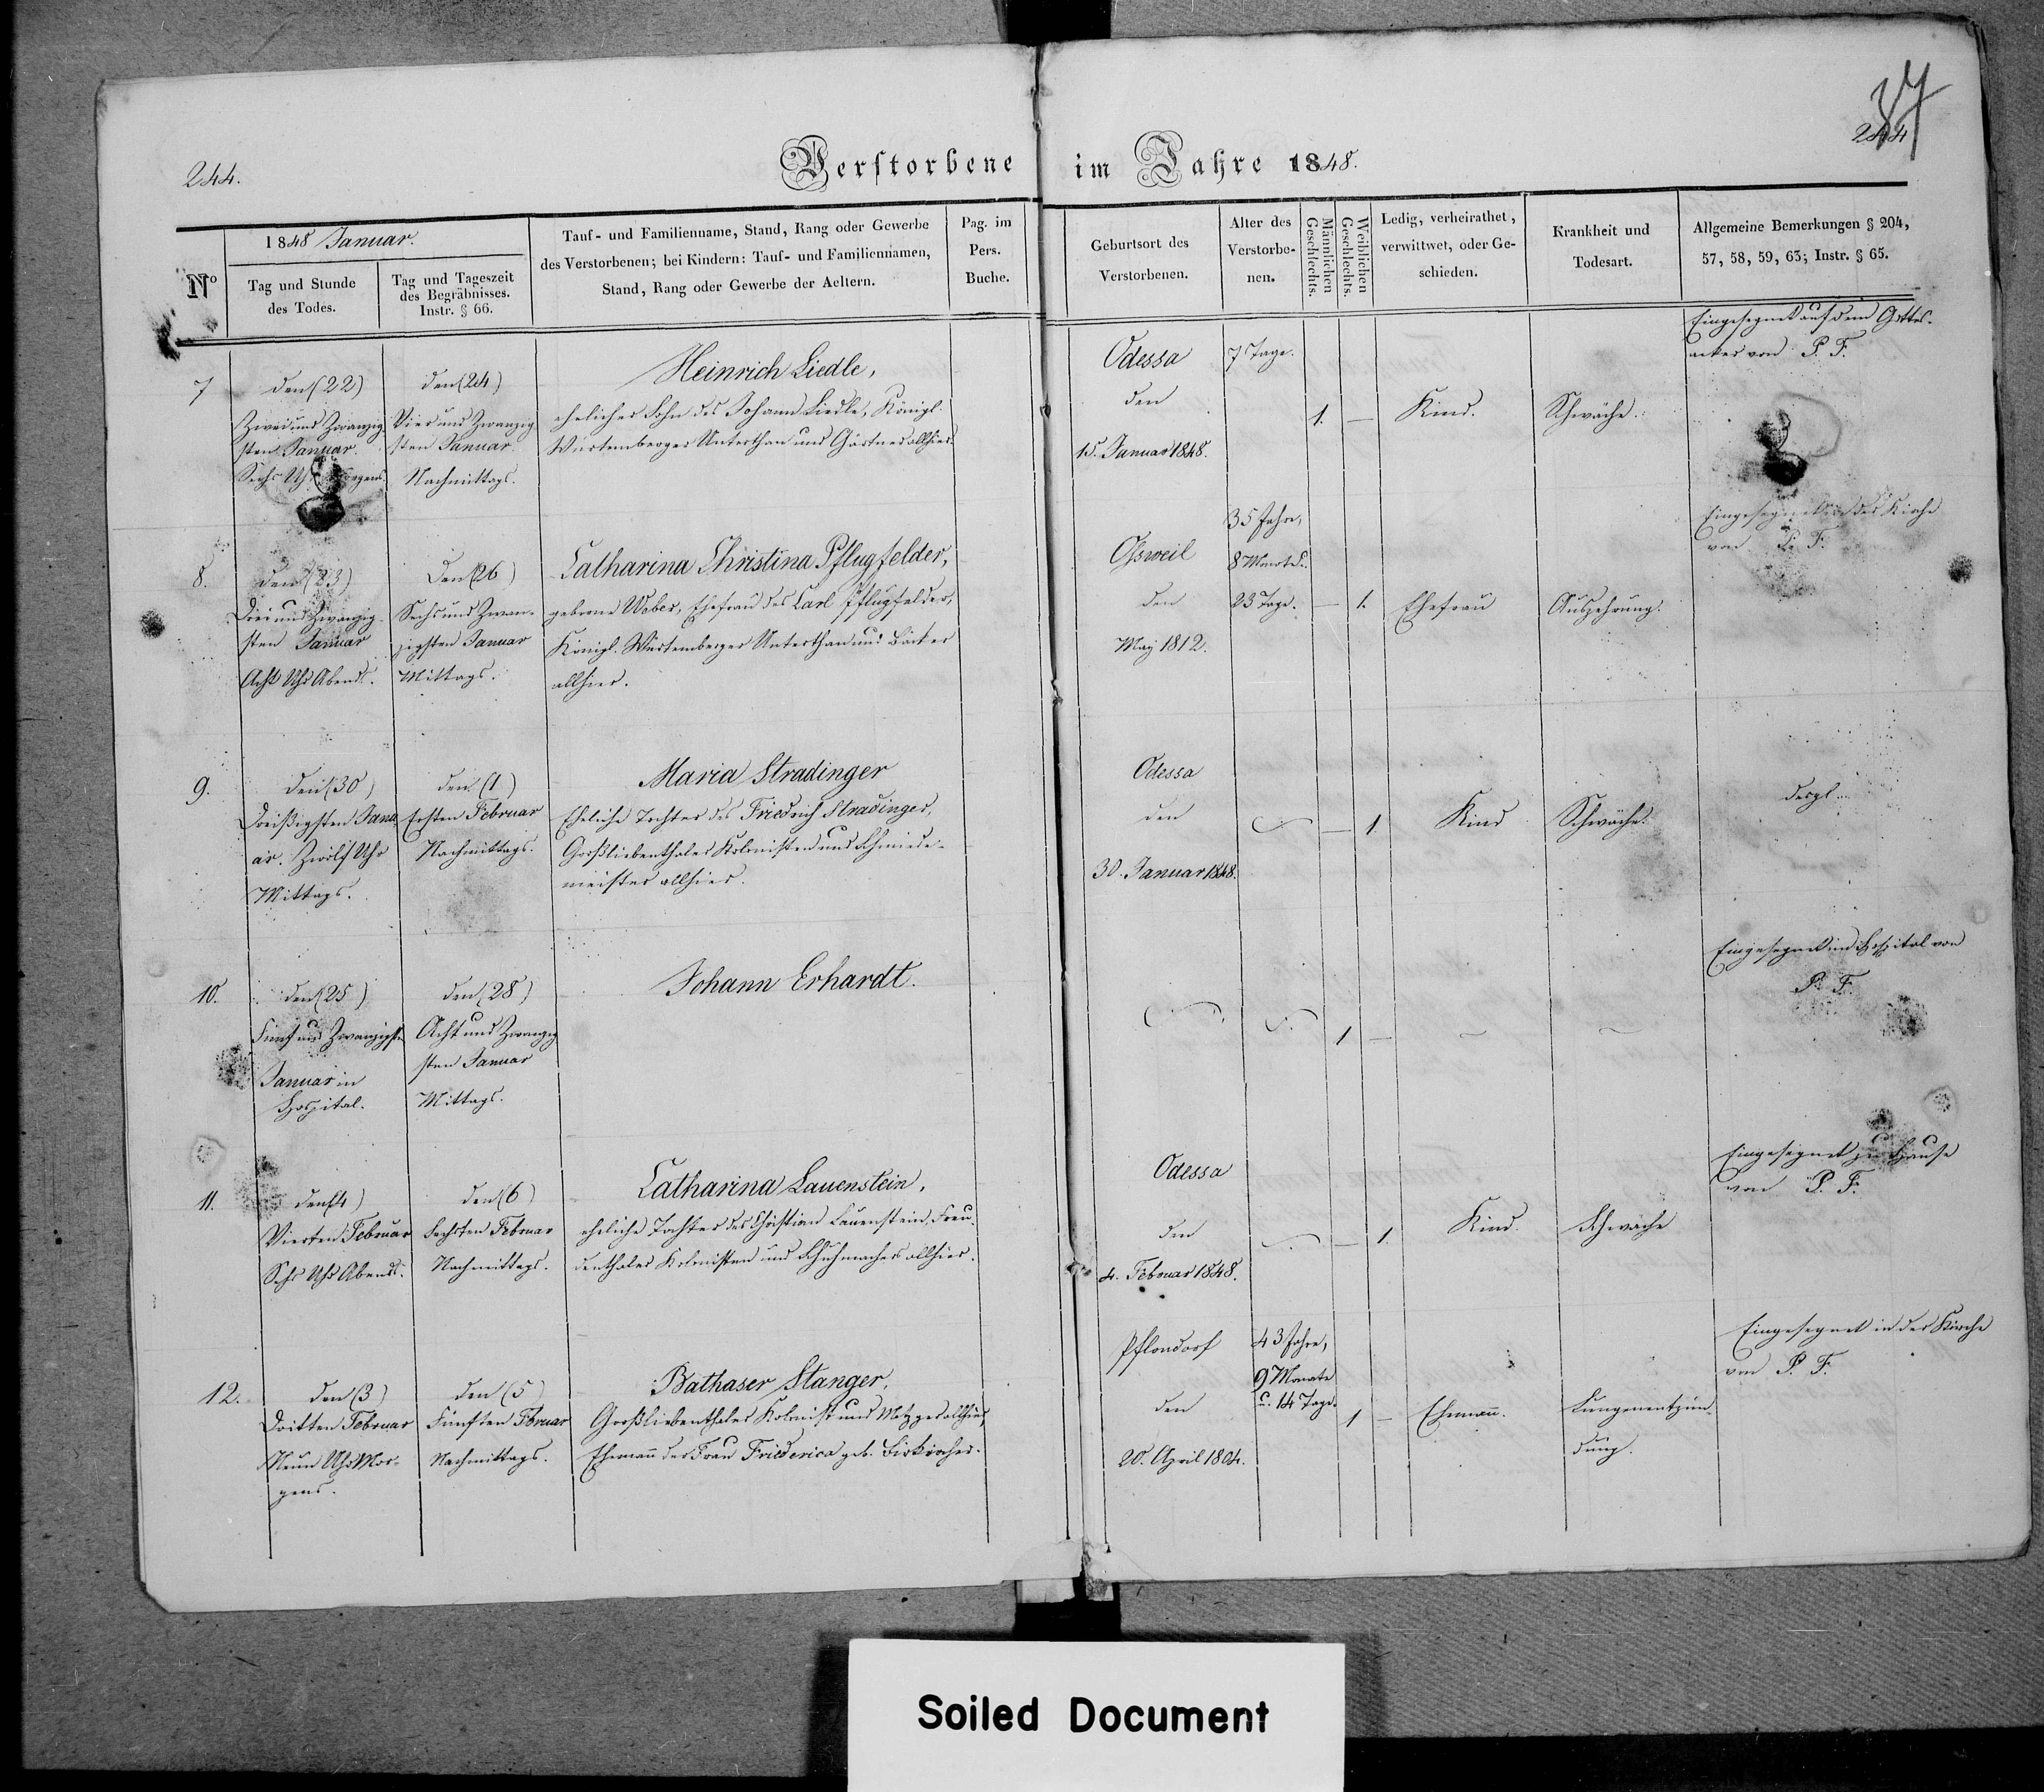 37
244.
244
Verstorbene im Jahre 1848.
No
1848 Januar.
Tag und Stunde
des Todes.
Tag und Tageszeit
des Begräbnisses.
Instr. § 66.
Tauf- und Familienname, Stand, Rang oder Gewerbe
des Verstorbenen; bei Kindern: Tauf- und Familiennamen,
Stand, Rang oder Gewerbe der Aeltern.
Pag. im
Pers.
Buche.
Geburtsort des
Verstorbenen.
Alter des
Verstorbe-
nen.
Männlichen
Geschlechts.
Weiblichen
Geschlechts.
Ledig, verheirathet,
verwittwet, oder Ge-
schieden.
Krankheit und
Todesart.
Allgemeine Bemerkungen § 204,
57, 58, 59, 63; Instr. § 65.
7
den (22)
Zwei und Zwanzig
sten Januar.
Sechs Uhr Morgens.
den (24)
Vier und Zwanzig
sten Januar
Nachmittags.
Heinrich Liedle,
ehelicher Sohn des Johann Liedle, Königl.
Würtemberger Unterthan und Gärtner allhier.
Odessa
den
15. Januar 1848.
7 Tage.
1. —
Kind.
Schwäche.
Eingesegnet auf dem Gottes-
acker von P. F.
8.
den (23)
Drei und Zwanzig-
sten Januar
Acht Uhr Abends.
den (26)
Sechs und Zwan-
zigsten Januar
Mittags.
Catharina Christina Pflugfelder,
geborne Weber, Ehefrau des Carl Pflugfelder,
Königl. Würtemberger Unterthan und Bäcker
allhier.
Ossweil
den
May 1812.
35 Jahre,
8 Monate.
23 Tage.
— 1.
Ehefrau
Auszehrung.
Eingesegnet in der Kirche
von P. F.
9.
den (30)
Dreißigsten Janu
ar. Zwölf Uhr
Mittags.
den (1)
Ersten Februar
Nachmittags.
Maria Stradinger
Eheliche Tochter des Friedrich Stradinger,
Großliebenthaler Kolonisten und Schmiede-
meister allhier.
Odessa
den
30. Januar 1848.
— 1.
Kind
Schwäche.
desgl.
10.
den (25)
Fünf und Zwanzigsten
Januar in
Hospital.
den (28)
Acht und Zwanzig
sten Januar
Mittags.
Johann Erhardt.
1 —
Eingesegnet im Hospital von
P. F.
11.
den (4)
Vierten Februar
Sechs Uhr Abends.
den (6)
Sechsten Februar
Nachmittags.
Catharina Lauenstein,
eheliche Tochter des Christian Lauenstein, Freu-
denthaler Kolonisten und Schuhmacher allhier.
Odessa
den
4. Februar 1848.
— 1.
Kind.
Schwäche
Eingesegnet zu Hause
von P. F.
12.
den (3)
Dritten Februar
Neun Uhr Mor-
gens.
den (5)
Fünften Februar
Nachmittags.
Bathaser Stanger,
Großliebenthaler Kolonist und Metzger allhier,
Ehemann der Frau Friederica geb.
Pflondorf
den
20. April 1804.
43 Jahre,
9 Monate
u. 14 Tage.
1 —
Ehemann.
Lungenentzün-
dung.
Eingesegnet in der Kirche
von P. F.
Soiled Document